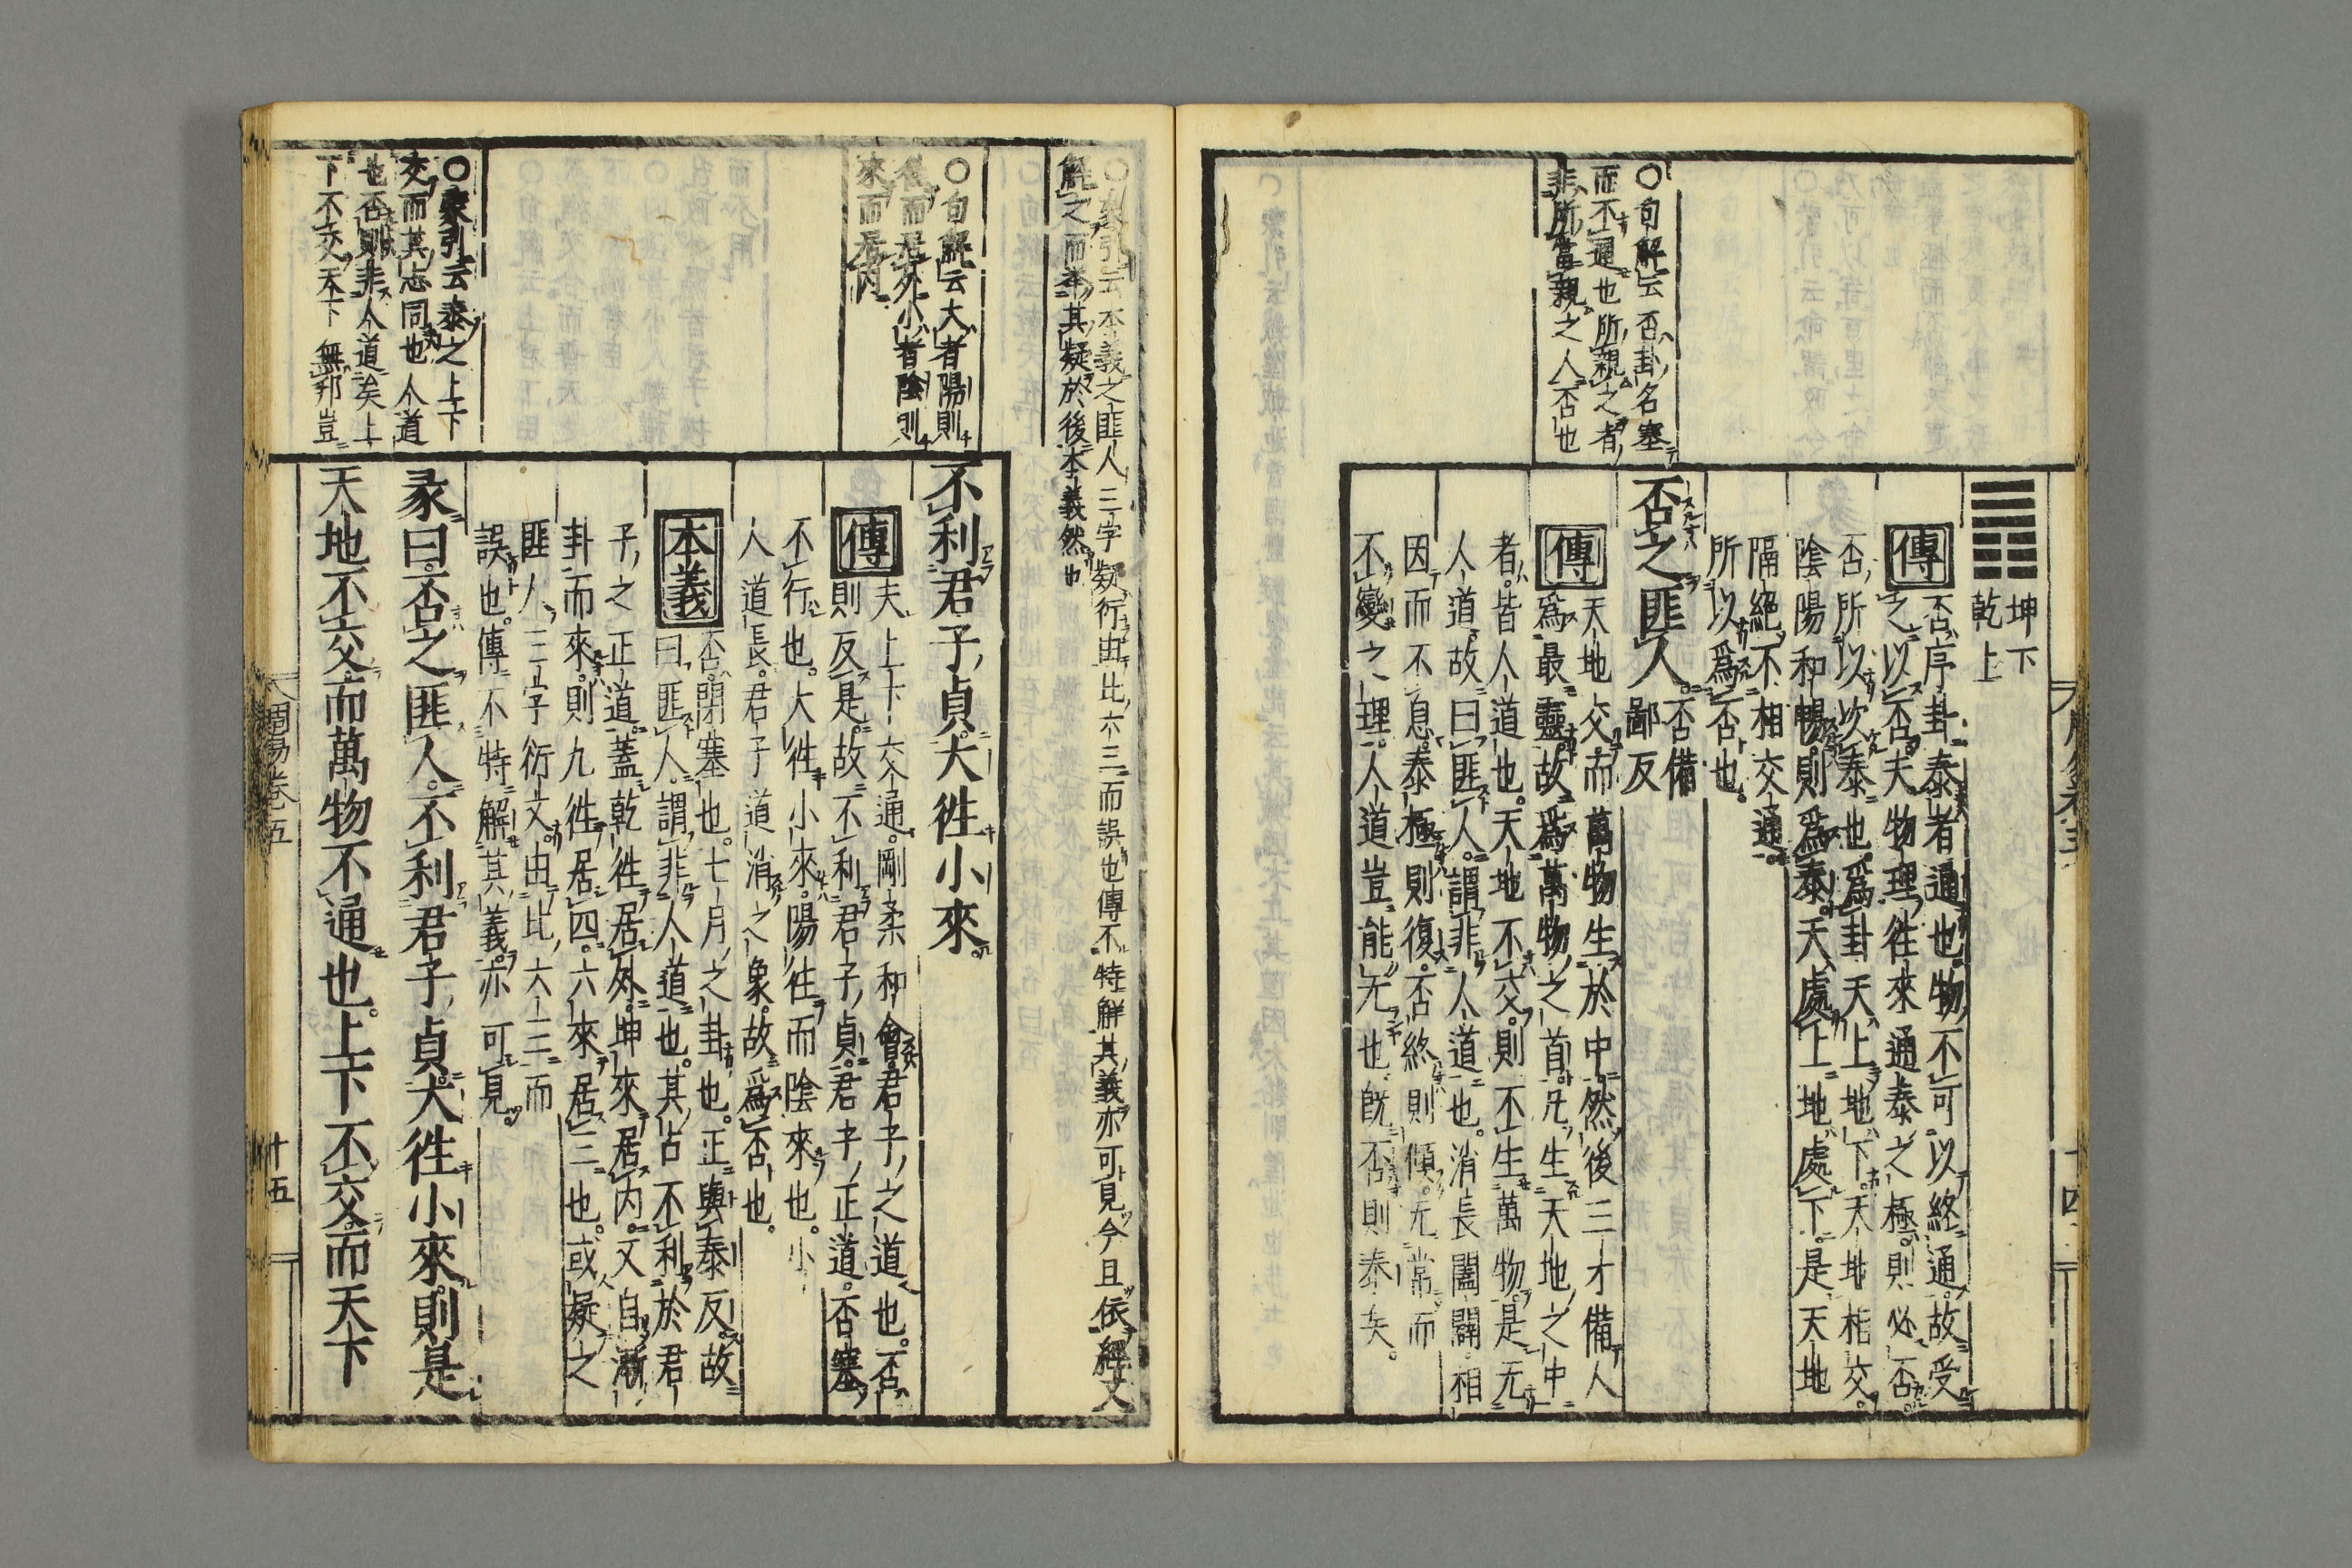 坤下
乾上
傳否序卦泰者通也物不可以終通故受
之以否夫物理徃來通泰之極則必否
否所以次泰也爲卦天上地下天地相交
陰陽和暢則爲泰天處上地處下是天地
隔絕不相交通
所以爲否也
否之匪人否備
鄙反
傳天地交而萬物生於中然後三才備人
爲最靈故爲萬物之首凡生天地之中
者皆人道也天地不交則不生萬物是无
人道故曰匪人謂非人道也消長闔闢相
因而不息泰極則復否終則傾无常而
不變之理人道豈能无也旣否則泰矣
〇句解云否卦名塞
而不通也所親之者
非所當親之人否也
十四
〇蒙引云本義之匪人三字疑衍由比六三而誤也傳不特解其義亦可見今且依經文
解之而奉其疑於後本義然也
〇句解云大者陽則
徃而居外小者陰則
來而居內
〇蒙引云泰之上下
交而其志同也人道
也否則非人道矣上
下不交天下無邦豈
不利君子貞大徃小來
傳夫上下交通剛柔和會君子之道也否
則反是故不利君子貞君子正道否塞
不行也大徃小來陽徃而陰來也小
人道長君子道消之象故爲否也
本義否閉塞也七月之卦也正與泰反故
曰匪人謂非人道也其占不利於君
子之正道蓋乾徃居外坤來居內又自漸
卦而來則九徃居四六來居三也或疑之
匪人三字衍文由比六三而
誤也傳不特解其義亦可見
彖曰否之匪人不利君子貞大徃小來則是
天地不交而萬物不通也上下不交而天下
周易卷五
十五